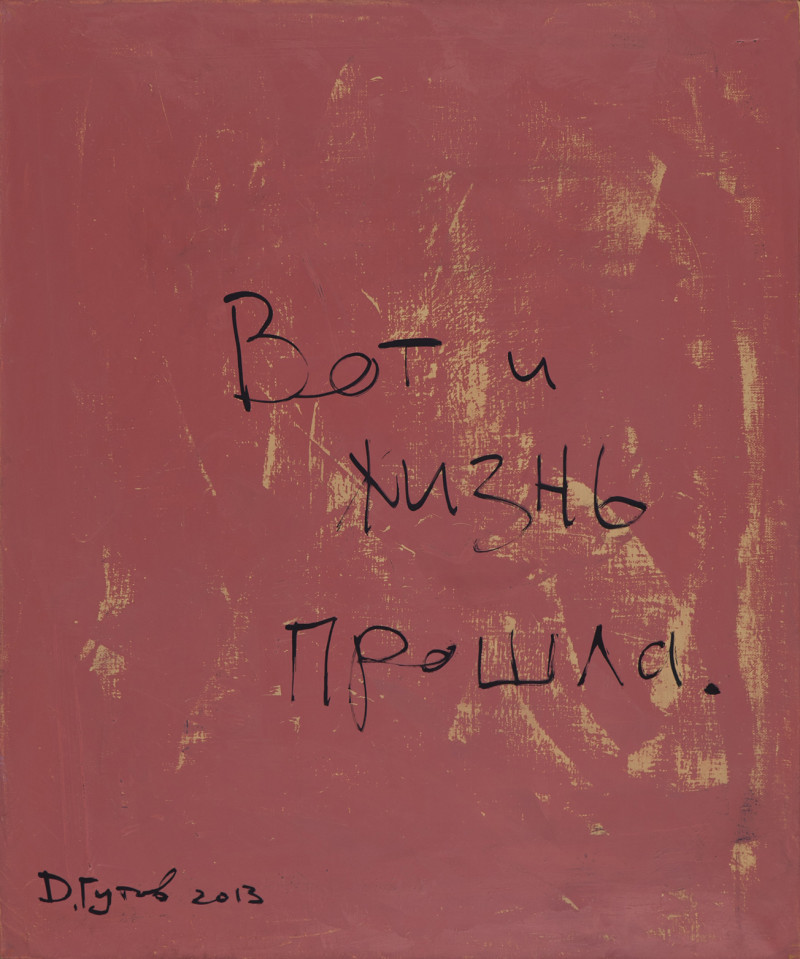 Вот и
жизнь
прошла.
Д.Гутов 2013